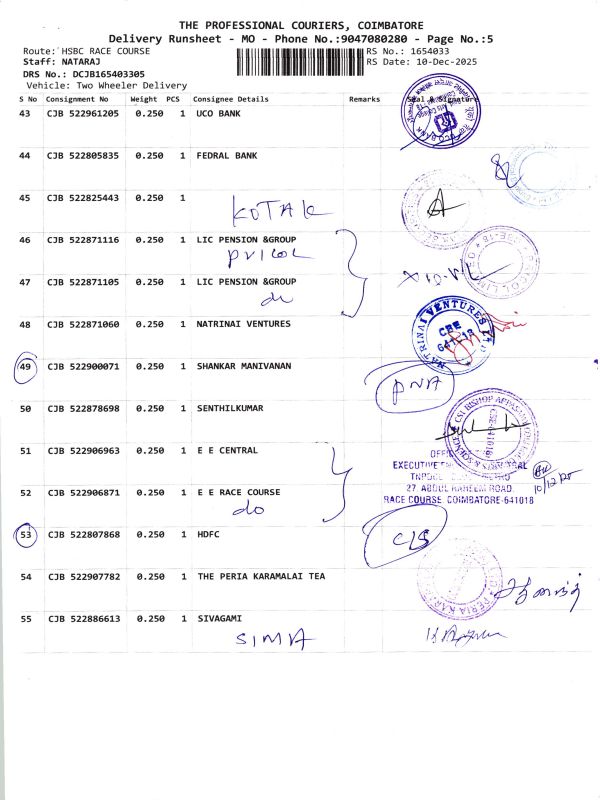 THE PROFESSIONAL COURIERS, COIMBATORE
Delivery Runsheet - MO - Phone No.:9047080280 - Page No.:5
Route: HSBC RACE COURSE RS No.: 1654033
Staff: NATARAJ RS Date: 10-Dec-2025
DRS No.: DCJB165403305
Vehicle: Two Wheeler Delivery
S No Consignment No Weight PCS Consignee Details Remarks Seal & Signature
43 CJB 522961205 0.250 1 UCO BANK
44 CJB 522805835 0.250 1 FEDRAL BANK
45 CJB 522825443 0.250 1
KOTAK
46 CJB 522871116 0.250 1 LIC PENSION &GROUP
PRICOL
47 CJB 522871105 0.250 1 LIC PENSION &GROUP
do
48 CJB 522871060 0.250 1 NATRINAI VENTURES
NATRINAI VENTURES
CBE
49 CJB 522900071 0.250 1 SHANKAR MANIVANAN
PNA
50 CJB 522878698 0.250 1 SENTHILKUMAR
51 CJB 522906963 0.250 1 E E CENTRAL
EXECUTIVE
27, ABDUL RAHEEM ROAD,
RACE COURSE, COIMBATORE-641018
10/12/25
52 CJB 522906871 0.250 1 E E RACE COURSE
do
53 CJB 522807868 0.250 1 HDFC
C/S
54 CJB 522907782 0.250 1 THE PERIA KARAMALAI TEA
55 CJB 522886613 0.250 1 SIVAGAMI
SIMA